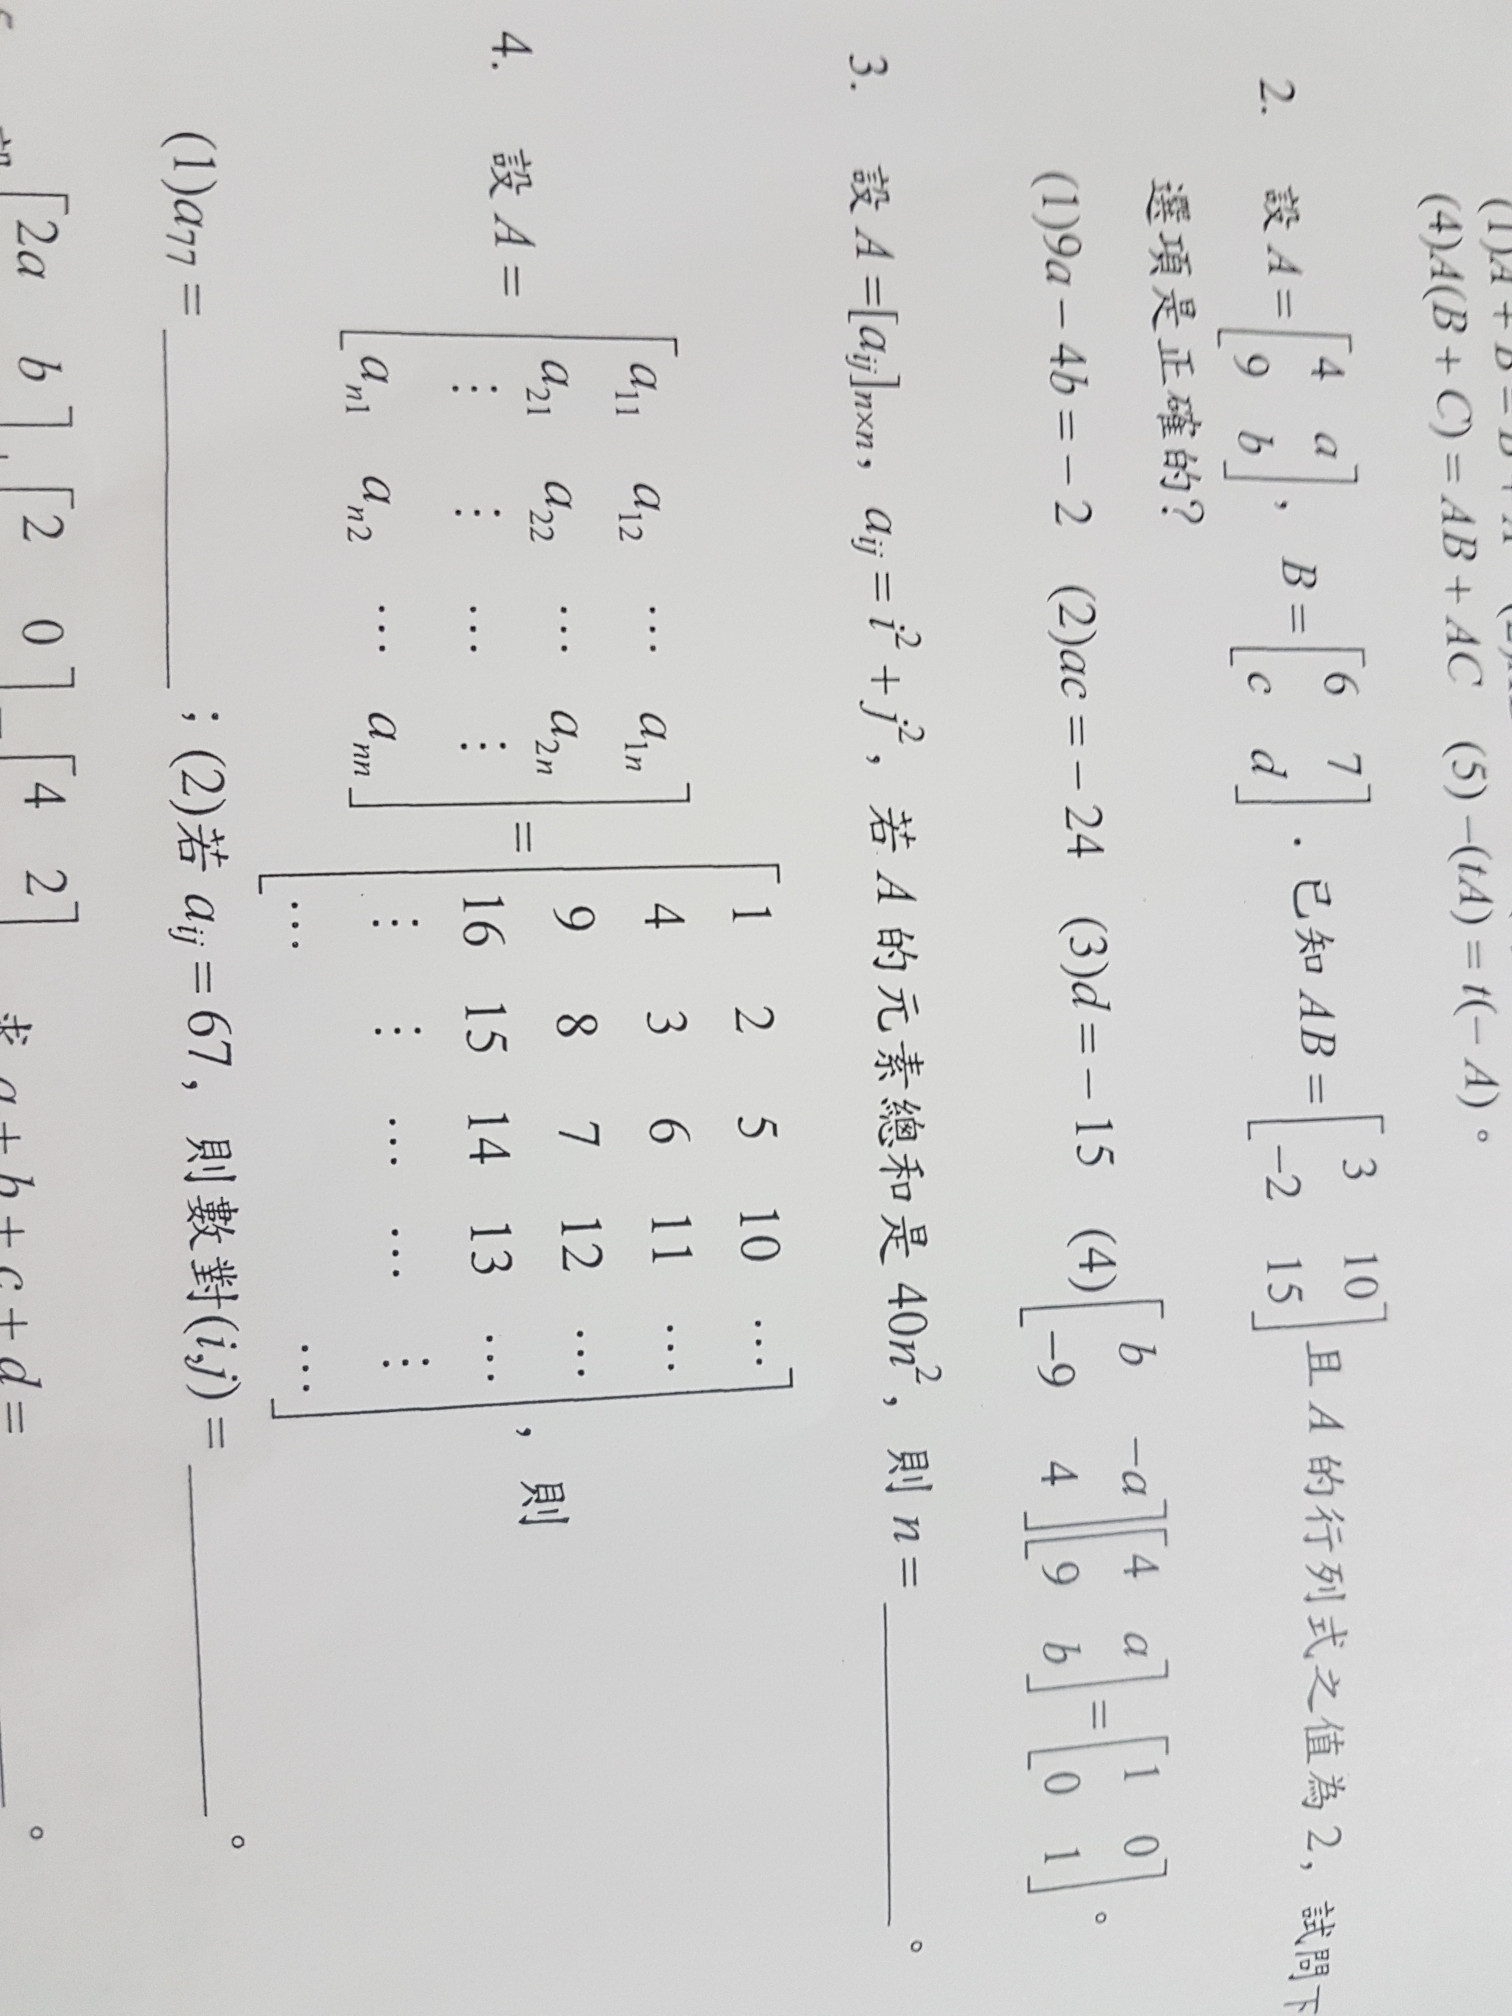 (4)A(B + C) = AB + AC (5) −(tA) = t(− A)。
2. 設 A = [4 a; 9 b], B = [6 7; c d]. 已知 AB = [3 10; −2 15] 且 A 的行列式之值為 2, 試問下
選項是正確的?
(1)9a − 4b = − 2 (2)ac = − 24 (3)d = − 15 (4)[b −a; −9 4][4 a; 9 b] = [1 0; 0 1]。
3. 設 A = [aij]n×n, aij = i² + j², 若 A 的元素總和是 40n², 則 n = ________。
4. 設 A = [a11 a12 ⋯ a1n; a21 a22 ⋯ a2n; ⋮ ⋮ ⋯ ⋮; an1 an2 ⋯ ann] = [1 2 5 10 ⋯; 4 3 6 11 ⋯; 9 8 7 12 ⋯; 16 15 14 13 ⋯; ⋮ ⋮ ⋯ ⋯ ⋮; ⋯ ⋯], 則
(1)a77 = ________ ; (2)若 aij = 67, 則數對(i,j) = ________。
[2a b] [2 0] [4 2] 求 a + b + c + d = ________。